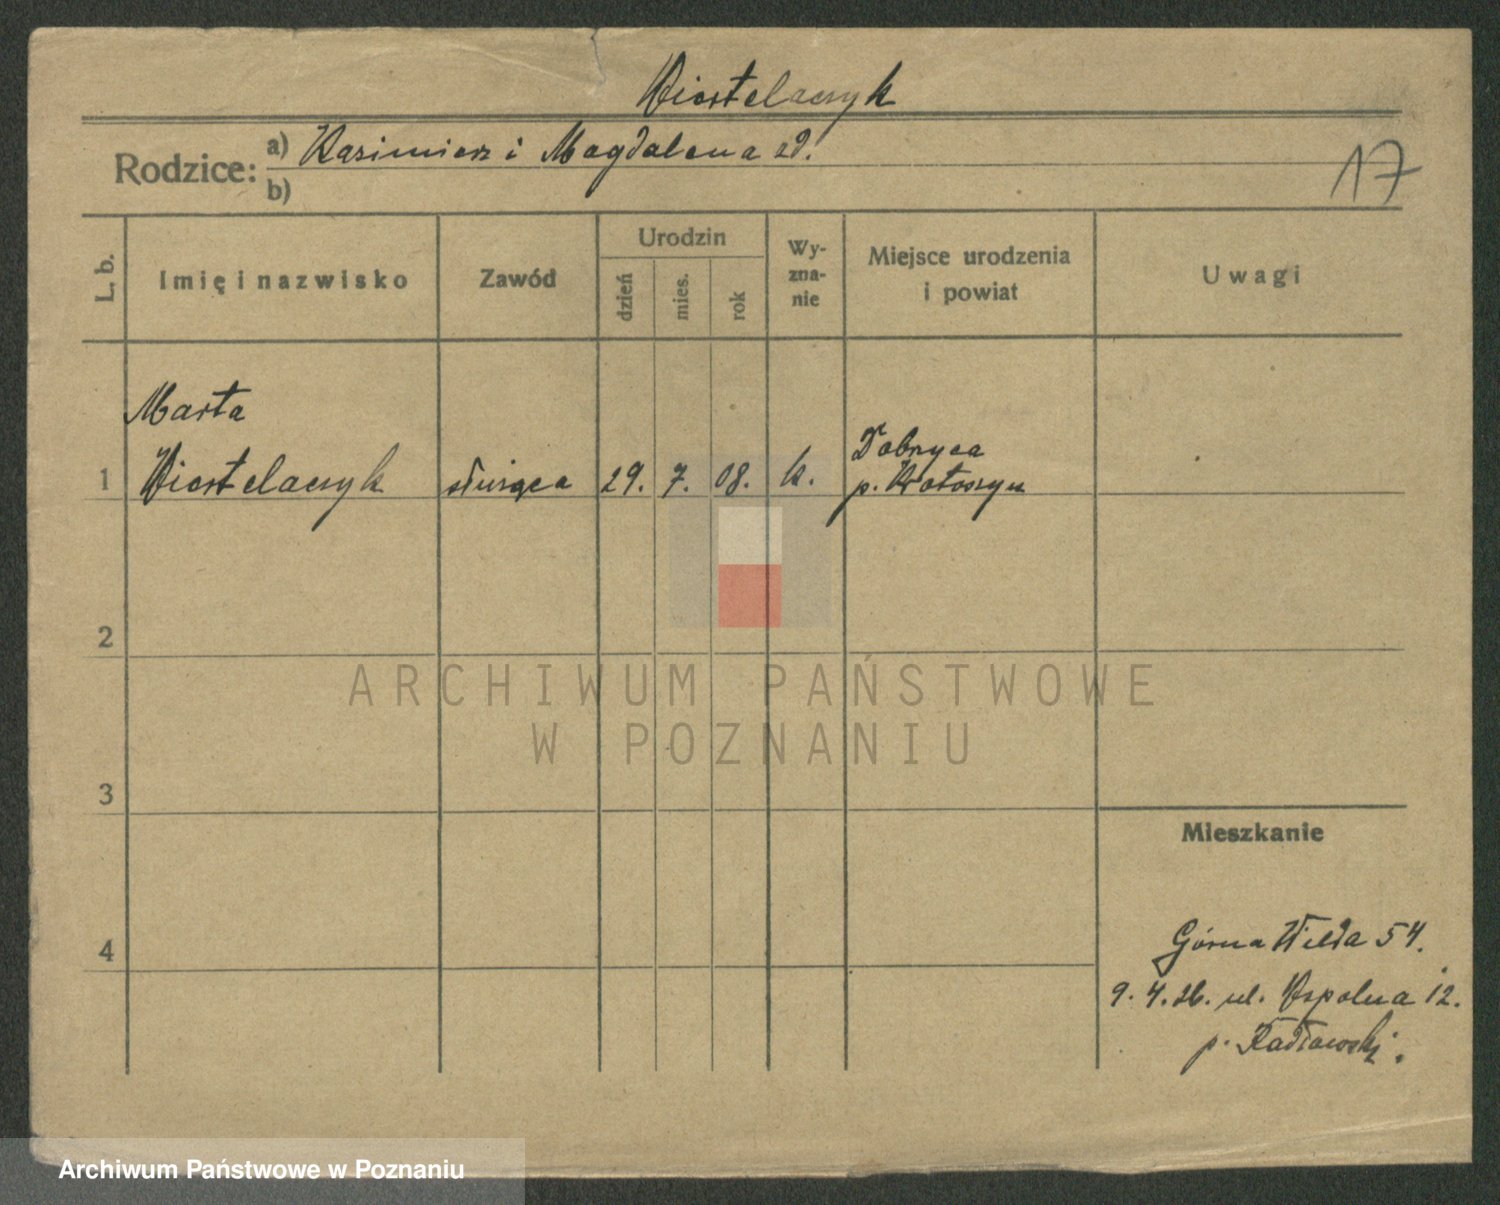 Wiertelaczyk
Rodzice: a) Kazimierz i Magdalena zd.
b)
17
L. b.
Imię i nazwisko
Zawód
Urodzin
dzień
mies.
rok
Wy-
zna-
nie
Miejsce urodzenia
i powiat
Uwagi
Marta
1 służąca 29. 7. 08. k.
Dobrzyca
p. Krotoszyn
2
3
4
ARCHIWUM PAŃSTWOWE
W POZNANIU
Mieszkanie
Górna Wilda 54.
9. 4. 26. ul. Wspólna 12.
p.
Archiwum Państwowe w Poznaniu